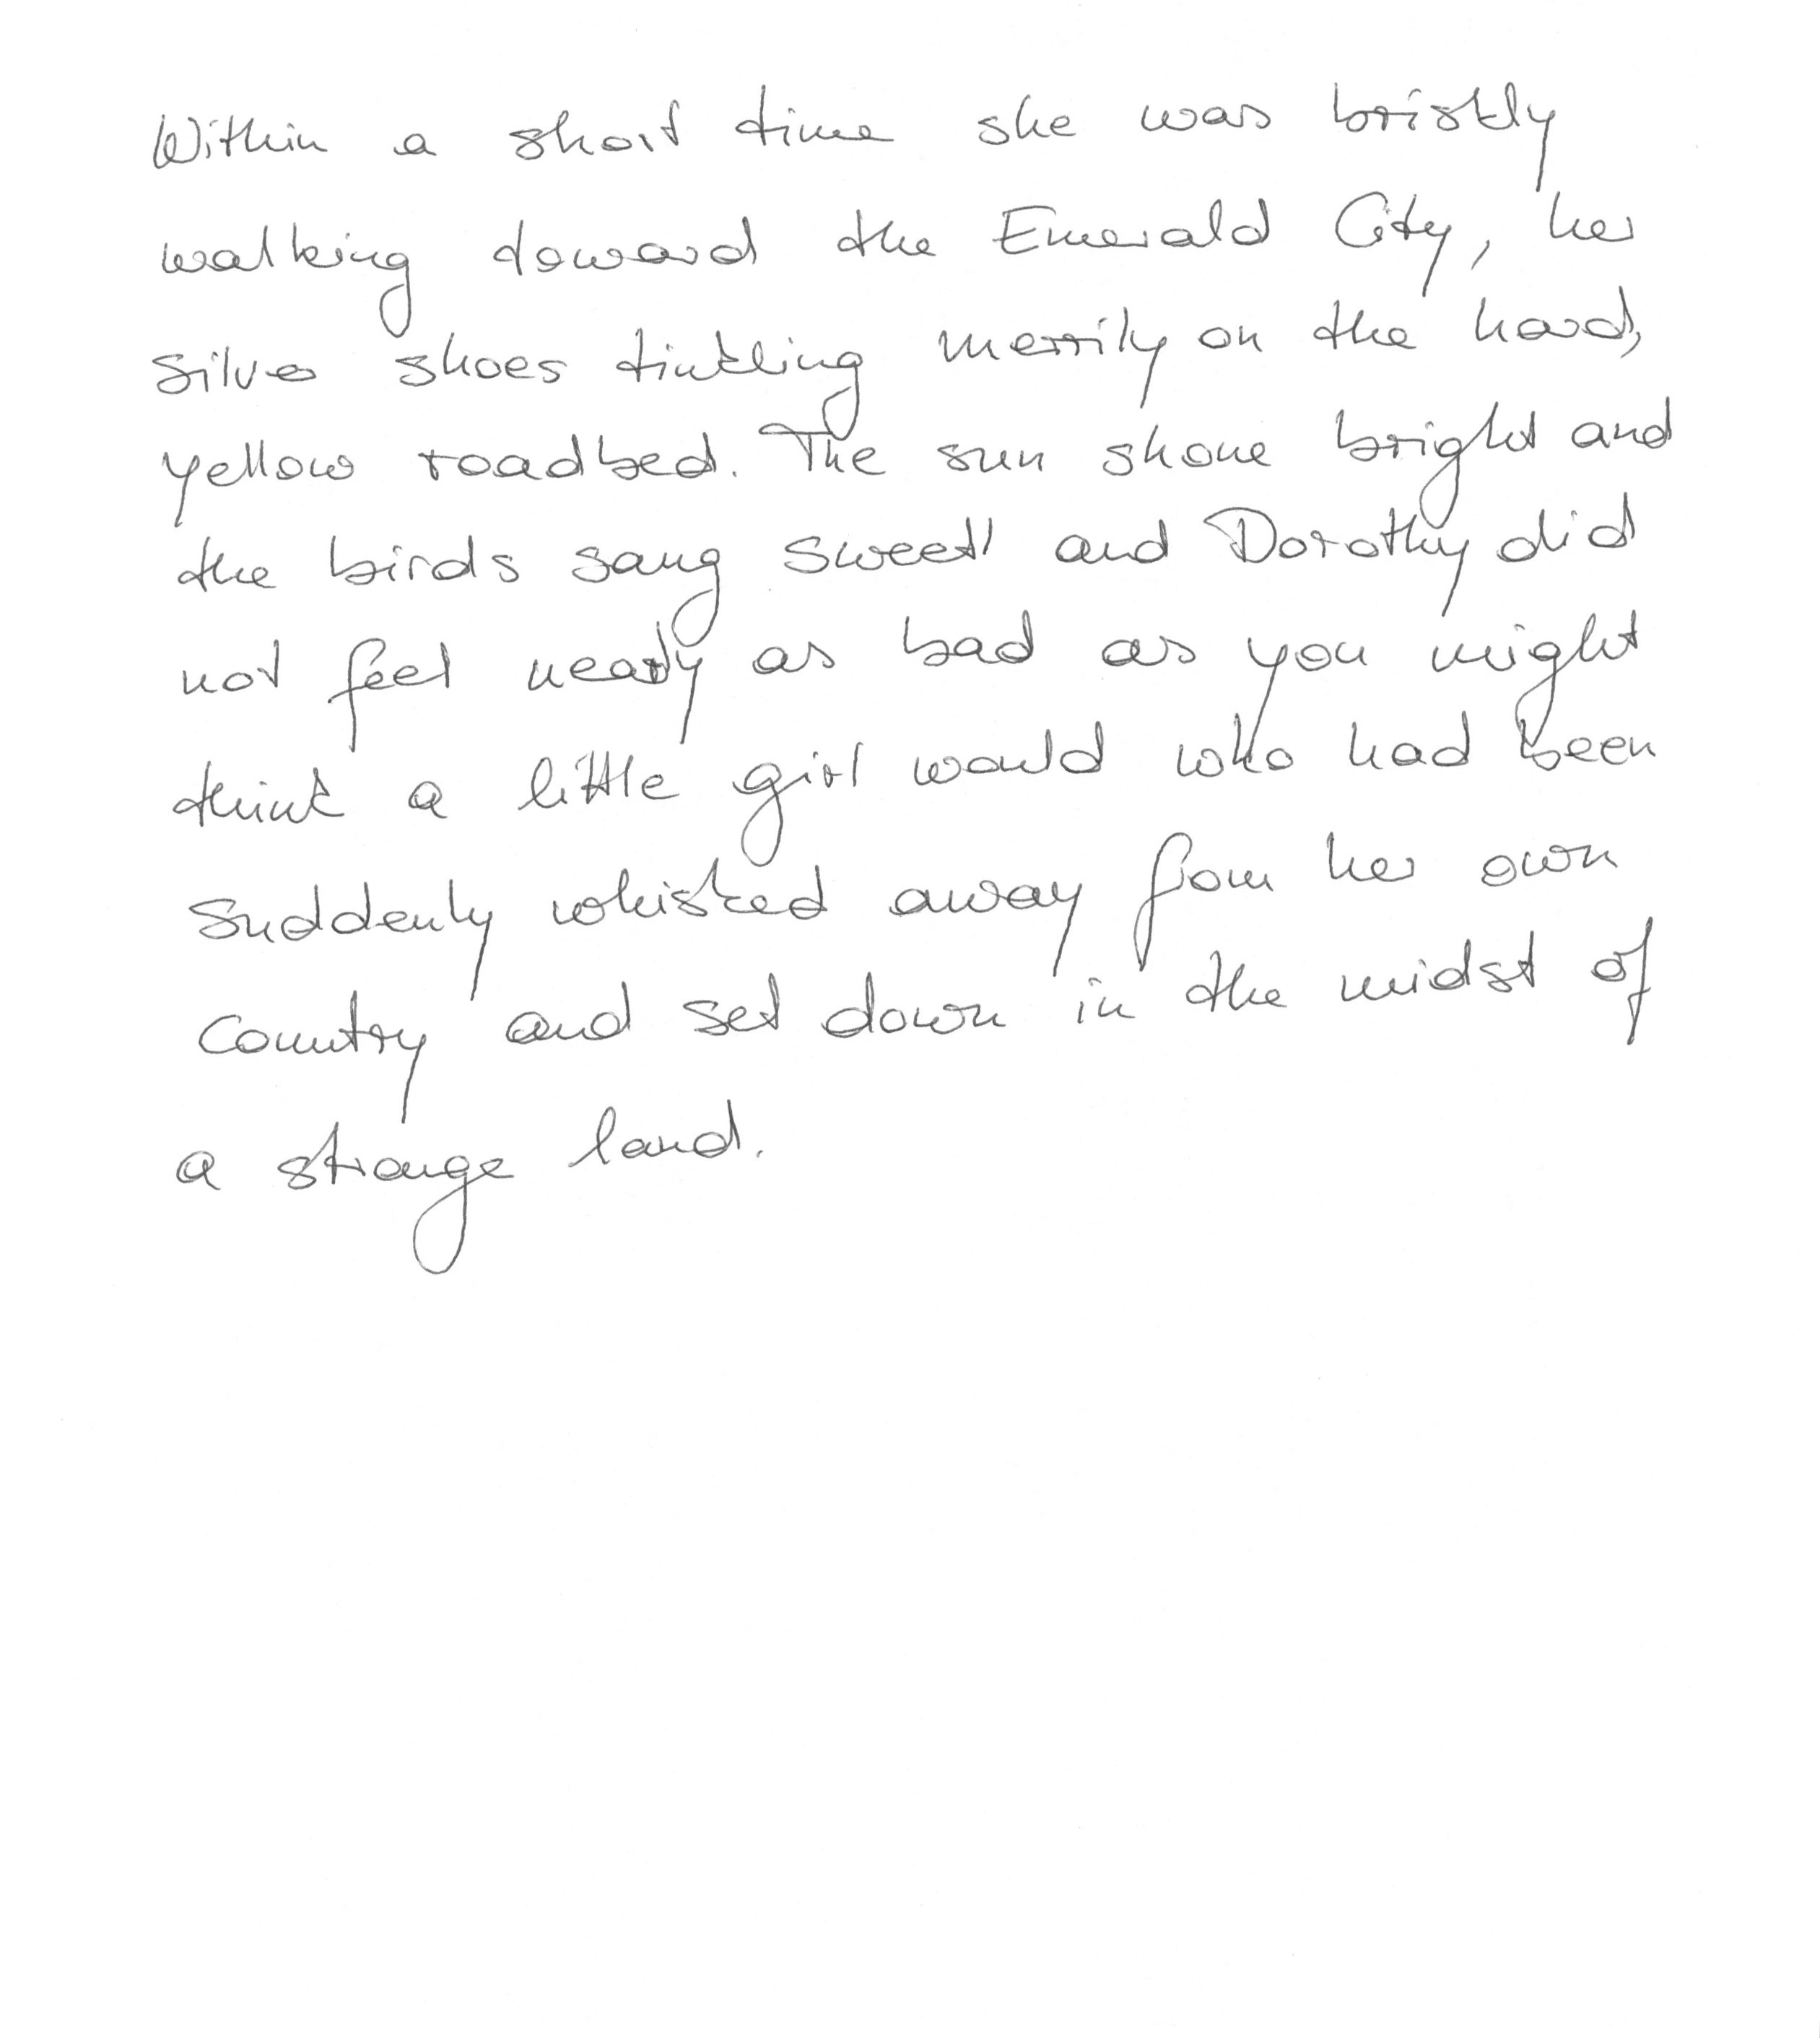 Within a short time she was briskly
walking toward the Emerald City, her
silver shoes tinkling merrily on the hard,
yellow roadbed. The sun shone bright and
the birds sang sweet and Dorothy did
not feel nearly as bad as you might
think a little girl would who had been
suddenly whisked away from her own
country and set down in the midst of
a strange land.